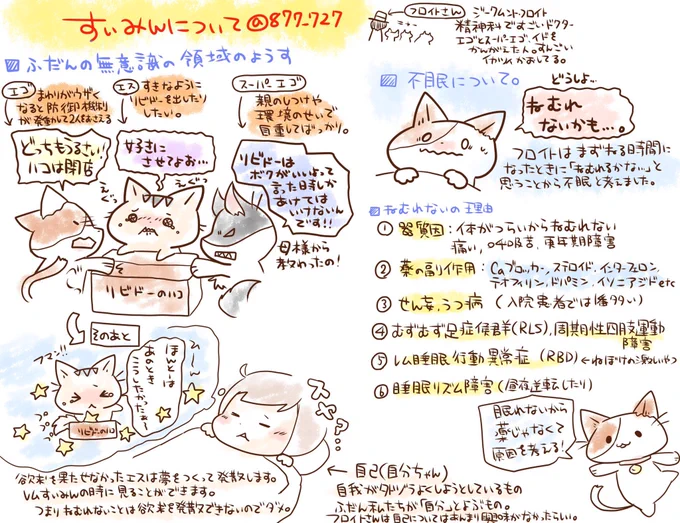 すいみんについて@877_727
ふだんの無意識の領域のようす
エゴ
まわりがウザく
なると防御機制
が発動して2人をおさえる
エス
すきなように
リビドーを出したり
したい。
スーパーエゴ
親のしつけや
環境のせいで
自重してばっかり。
どっちもうるさい!
ハコは閉店
好きに
させてよお…
リビドーは
ボクがいいよって
言った日しか
あけては
いけないん
です!!
母様から
教わったの!
えぐっ
えぐっ
リビドーのハコ
そのあと
フマン!!
プププ
リビドーのハコ
ほんとーは
あのとき
こうしたかったぁー
ひーん
スヤァ?
欲求を果たせなかったエスは夢をつくって発散します。
レムすいみんの時に見ることができます。
つまりねむれないことは欲求を発散できないのでダメ。
フロイトさん
ジークムントフロイト
精神科ですごいドクター
エゴとスーパーエゴ、イドを
かんがえた人。すんごい
不眠について。
どうしよ…
ねむれ
ないかも…。
フロイトはまずねる時間に
なったときに「ねむれるかな…」と
思うことから不眠と考えました。
ねむれないの理由
① 器質因:体がつらいからねむれない
痛い、呼吸苦、更年期障害
② 薬の副作用:Caブロッカー、ステロイド、インターフェロン、
テオフィリン、ドパミン、イソニアジドetc
③ せん妄、うつ病(入院患者では1番多い)
④ むずむず足症候群(RLS)、周期性四肢運動
障害
⑤ レム睡眠行動異常症(RBD)←ねぼけの激しいやつ
⑥ 睡眠リズム障害(昼夜逆転したり)
眠れないから
薬じゃなくて
原因を考える!
← 自己(自分ちゃん)
自我がタドゾうよくしようとしているもの
ふだん私たちが「自分」とよぶもの。
フロイトさんは自己についてはあんまり興味がなかったらしい。